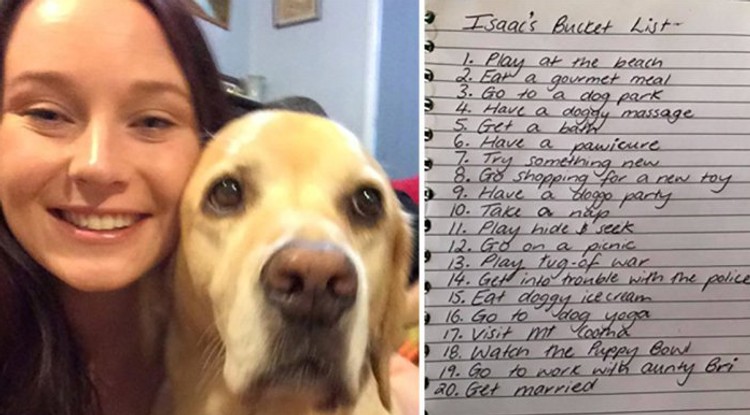 Isaac's Bucket List~
1. Play at the beach
2. Eat a gourmet meal
3. Go to a dog park
4. Have a doggy massage
5. Get a bath
6. Have a pawicure
7. Try something new
8. Go shopping for a new toy
9. Have a doggo party
10. Take a nap
11. Play hide & seek
12. Go on a picnic
13. Play tug-of war
14. Get into trouble with the police
15. Eat doggy icecream
16. Go to dog yoga
17. Visit Mt Cootha
18. Watch the Puppy Bowl
19. Go to work with aunty Bri
20. Get married